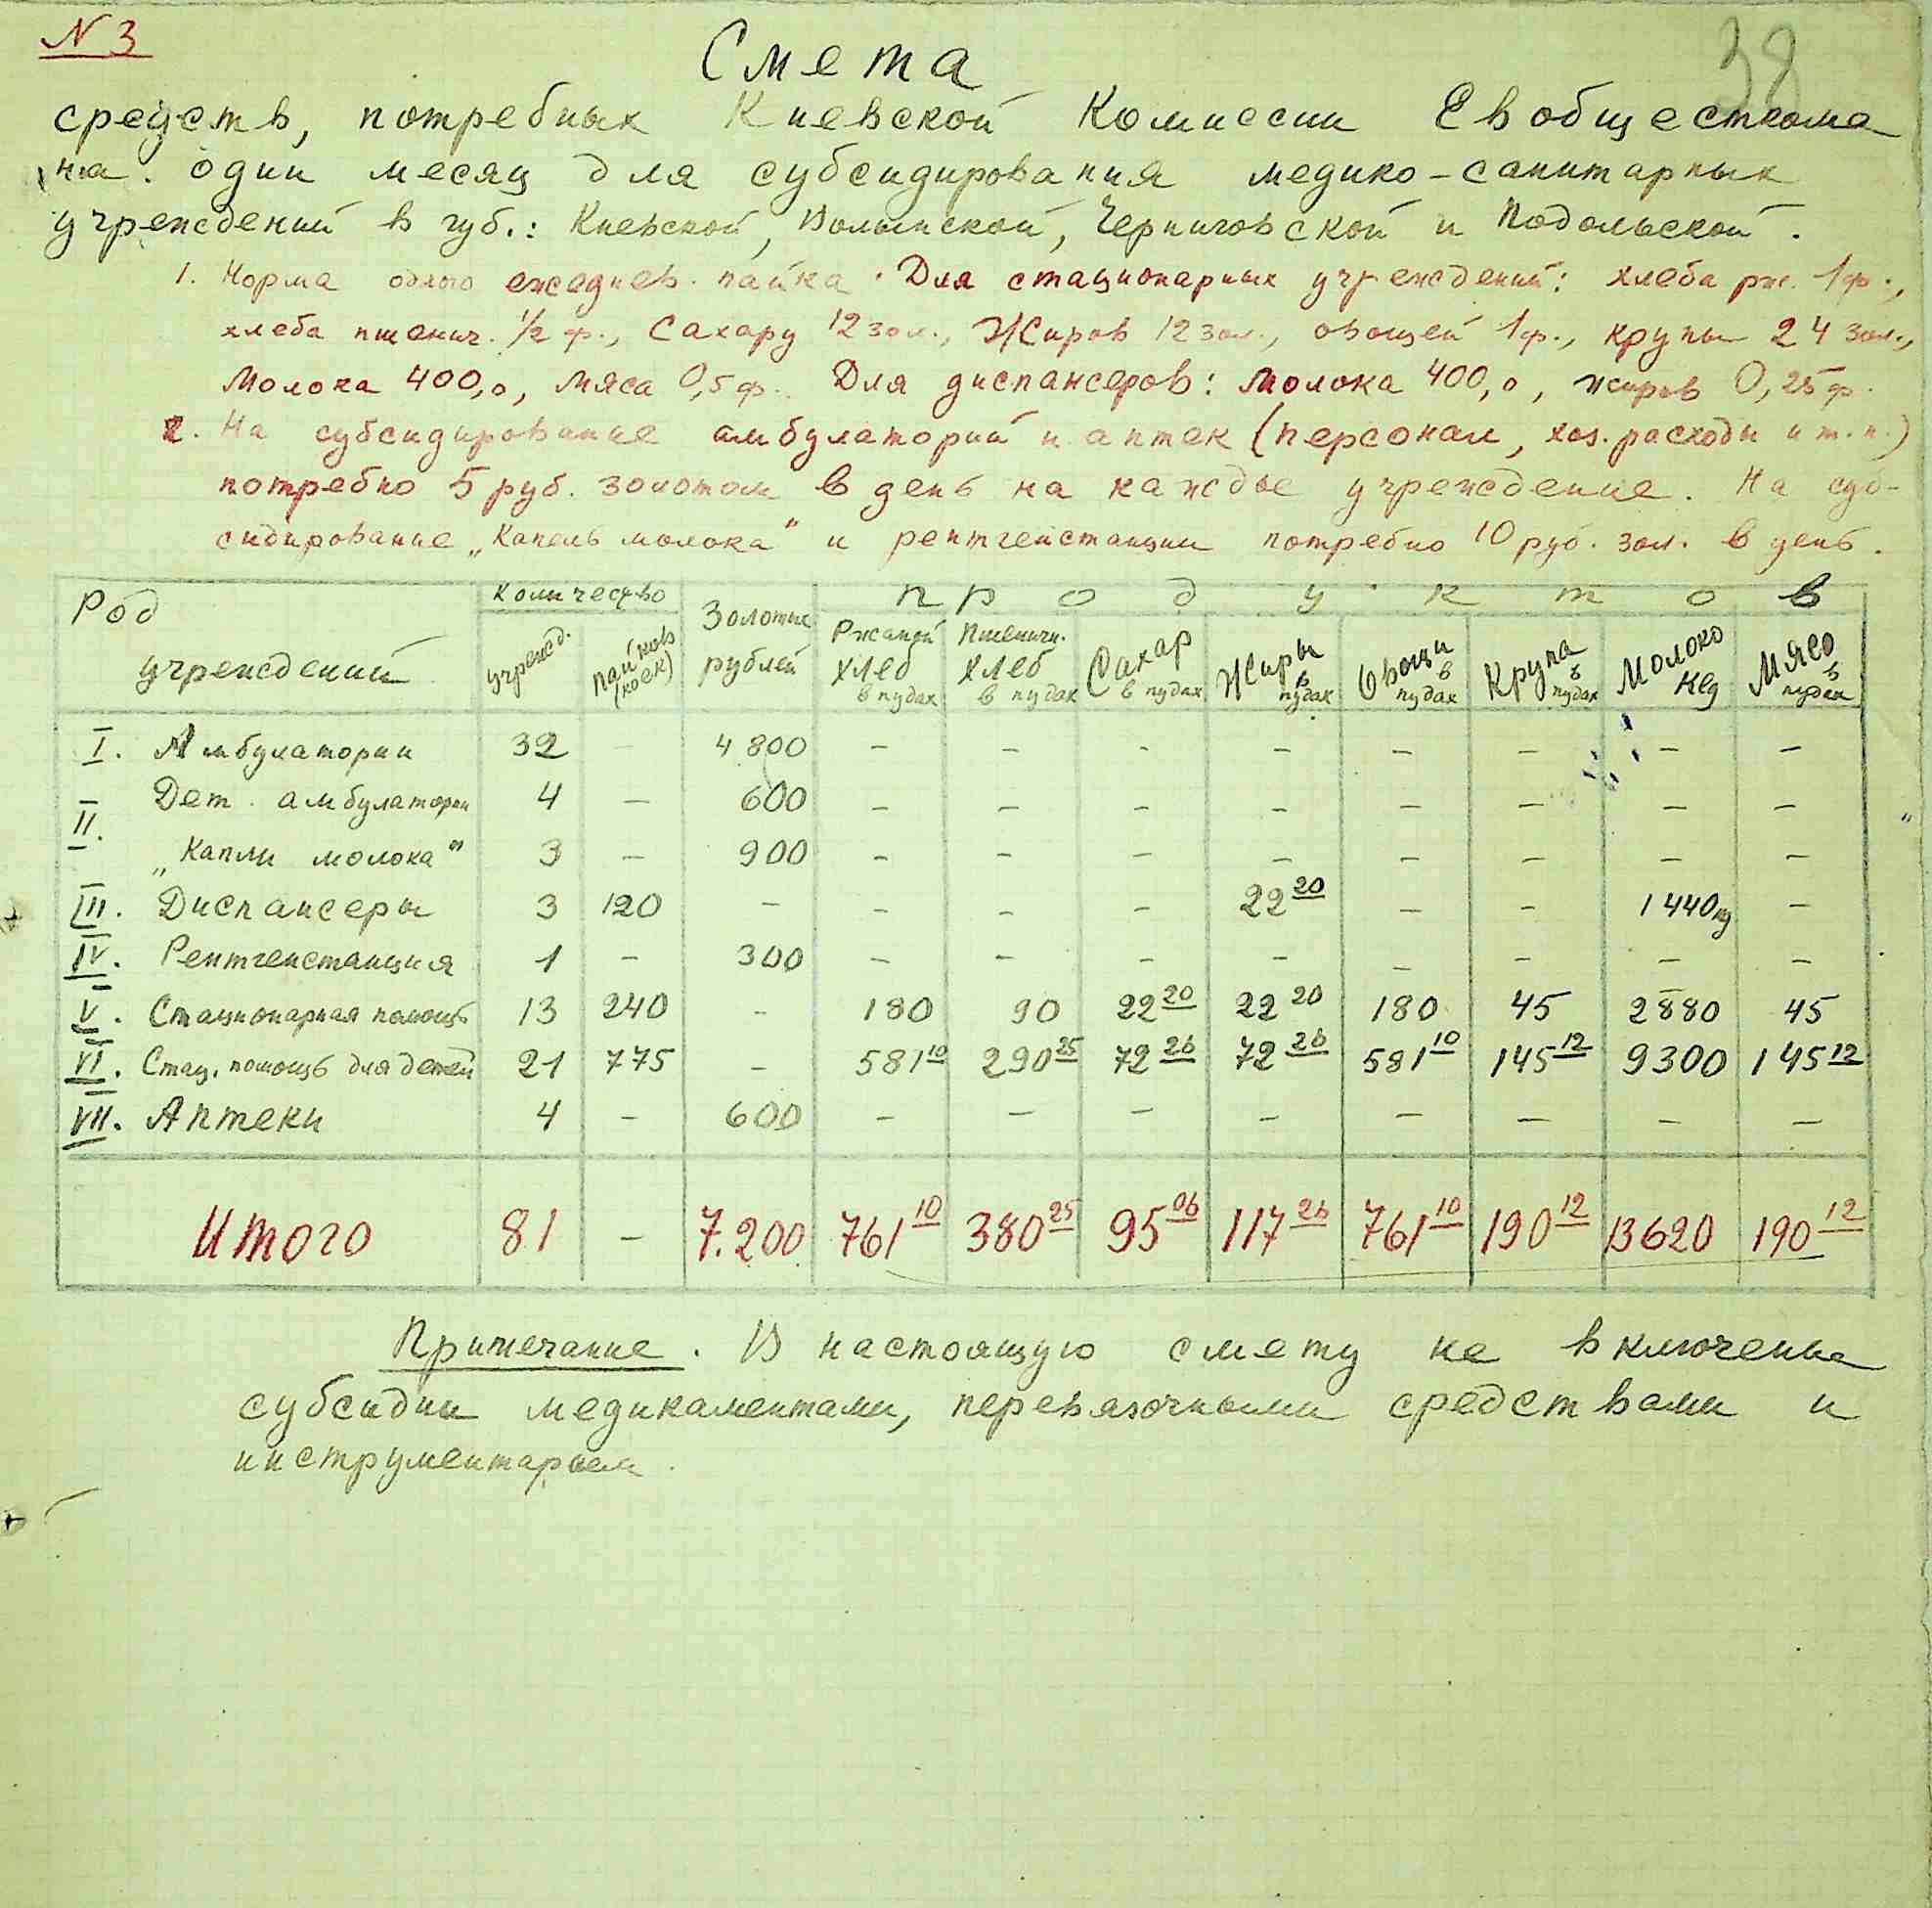 N 3
38
Смета
средств, потребных Киевской Комиссии Евобщесткома
на один месяц для субсидирования медико-санитарных
учреждений в губ.: Киевской, Волынской, Черниговской и Подольской.
1. Норма одного ежеднев. пайка. Для стационарных учреждений: хлеба рж. 1ф.,
хлеба пшенич. 1/2 ф., Сахару 12 зол., Жиров 12 зол., овощей 1ф., крупы 24 зол.,
Молока 400,0, Мяса 0,5 ф. Для диспансеров: молока 400,0, жиров 0,25 ф.
2. На субсидирование амбулаторий и аптек (персонал, хоз. расходы и т. п.)
потребно 5 руб. золотом в день на каждое учреждение. На суб-
сидирование „Капель молока“ и рентгенстанции потребно 10 руб. зол. в день.
Род учреждений | Количество учрежд. | пайков (коек) | Золотых рублей | Продуктов
Ржаной хлеб в пудах | Пшеничн. хлеб в пудах | Сахар в пудах | Жиры в пудах | Овощи в пудах | Крупа в пудах | Молоко Kg | Мясо в пудах
I. Амбулатории 32 – 4800 – – – – – – – –
II. Дет. амбулатории 4 – 600 – – – – – – – –
„Капли молока“ 3 – 900 – – – – – – – –
III. Диспансеры 3 120 – – – – 22 20 – – 1440 kg –
IV. Рентгенстанция 1 – 300 – – – – – – – –
V. Стационарная помощь 13 240 – 180 90 22 20 22 20 180 45 2880 45
VI. Стац. помощь для детей 21 775 – 581 10 290 25 72 26 72 26 581 10 145 12 9300 145 12
VII. Аптеки 4 – 600 – – – – – – – –
Итого 81 – 7.200 761 10 380 25 95 06 117 26 761 10 190 12 13620 190 12
Примечание. В настоящую смету не включены
субсидии медикаментами, перевязочными средствами и
инструментарием.